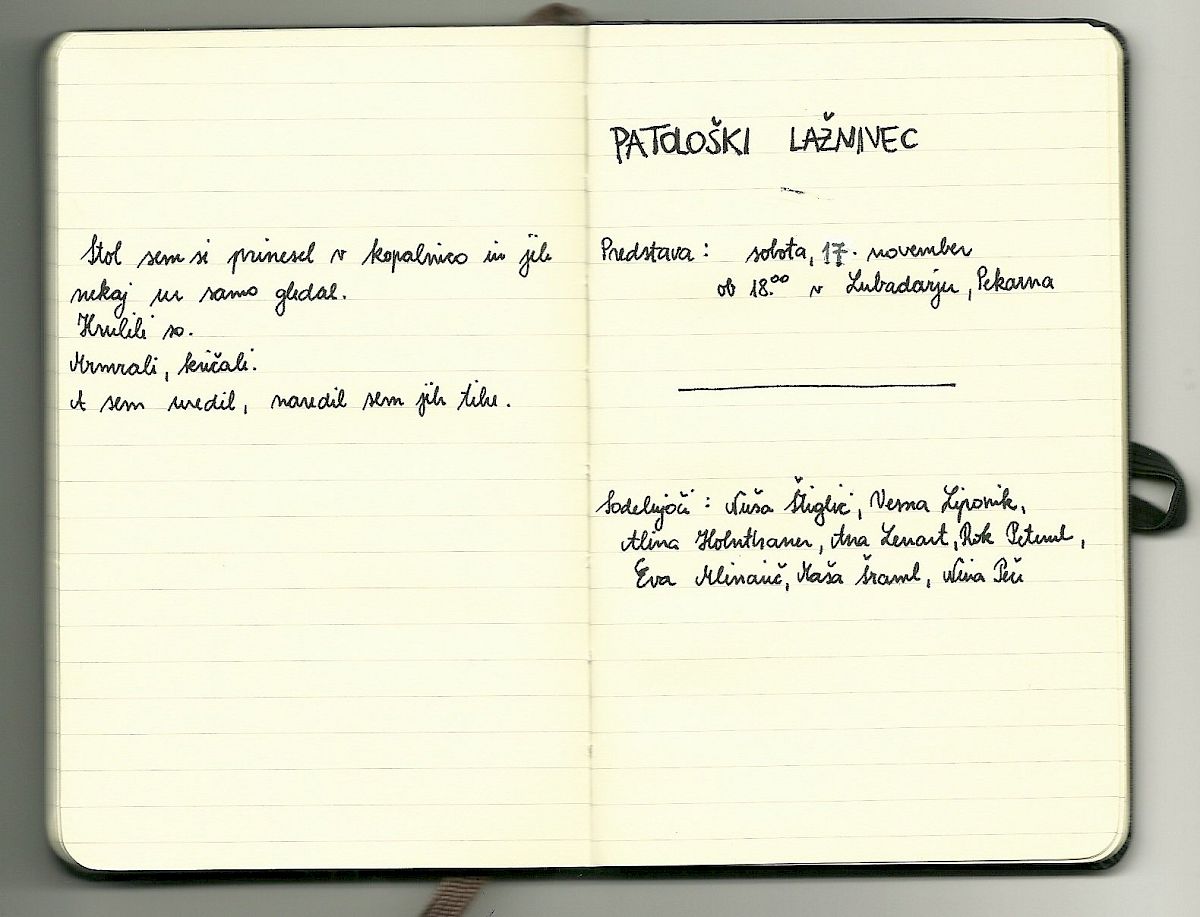 Stol sem si prinesel v kopalnico in jih
nekaj ur samo gledal.
Hrulili so.
Mrmrali, kričali.
A sem uredil, naredil sem jih tihe.
PATOLOŠKI LAŽNIVEC
Predstava: sobota, 17. november
ob 18.00 v Lubadarju, Pekarna
Sodelujoči: Nuša Štiglic, Vesna Lipovnik,
Alina Holnthaner, Ana Lenart, Rok Peternel,
Eva Mlinarič, Maša Šraml, Nina Peče